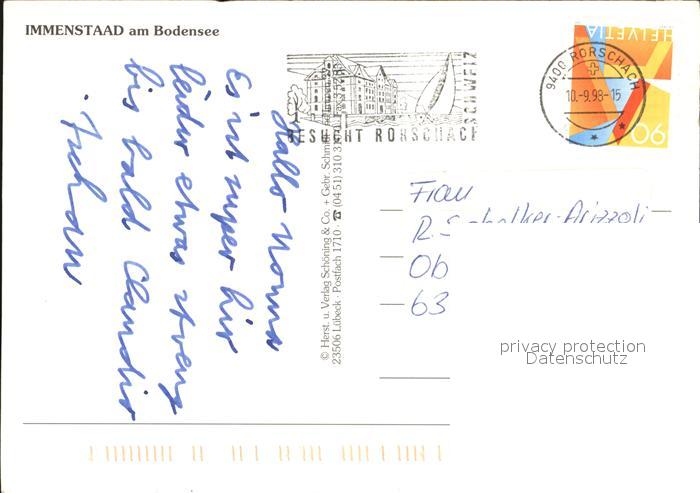 IMMENSTAAD am Bodensee
Hallo Nonna
Es ist super hir
leider etwas streng
bis bald Claudio
BESUCHT RORSCHACH
SCHWEIZ
HELVETIA
90
9400 RORSCHACH
10.-9.98-15
© Herst. u. Verlag Schöning & Co. + Gebr. Schmidt
23506 Lübeck · Postfach 1710 · ☎ (04 51) 310 31
Frau
Ob
63
privacy protection
Datenschutz